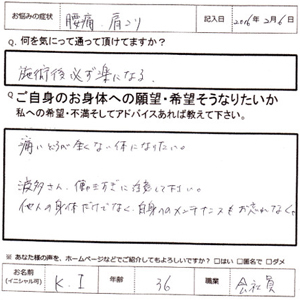 お悩みの症状 腰痛.肩こり 記入日 2016年2月6日
Q. 何を気にって通って頂けてますか?
施術後必ず楽になる.
Q.ご自身のお身体への願望・希望そうなりたいか
私への希望・不満そしてアドバイスあれば教えて下さい。
痛いところが全くない体になりたい。
波多さん、働きすぎに注意して下さい。
他人の身体だけでなく、自身へのメンテナンスもお忘れなく。
※ あなた様の声を、ホームページなどでご紹介してもよろしいですか? □はい □匿名で □ダメ
お名前 (イニシャル可) K.I 年齢 36 職業 会社員